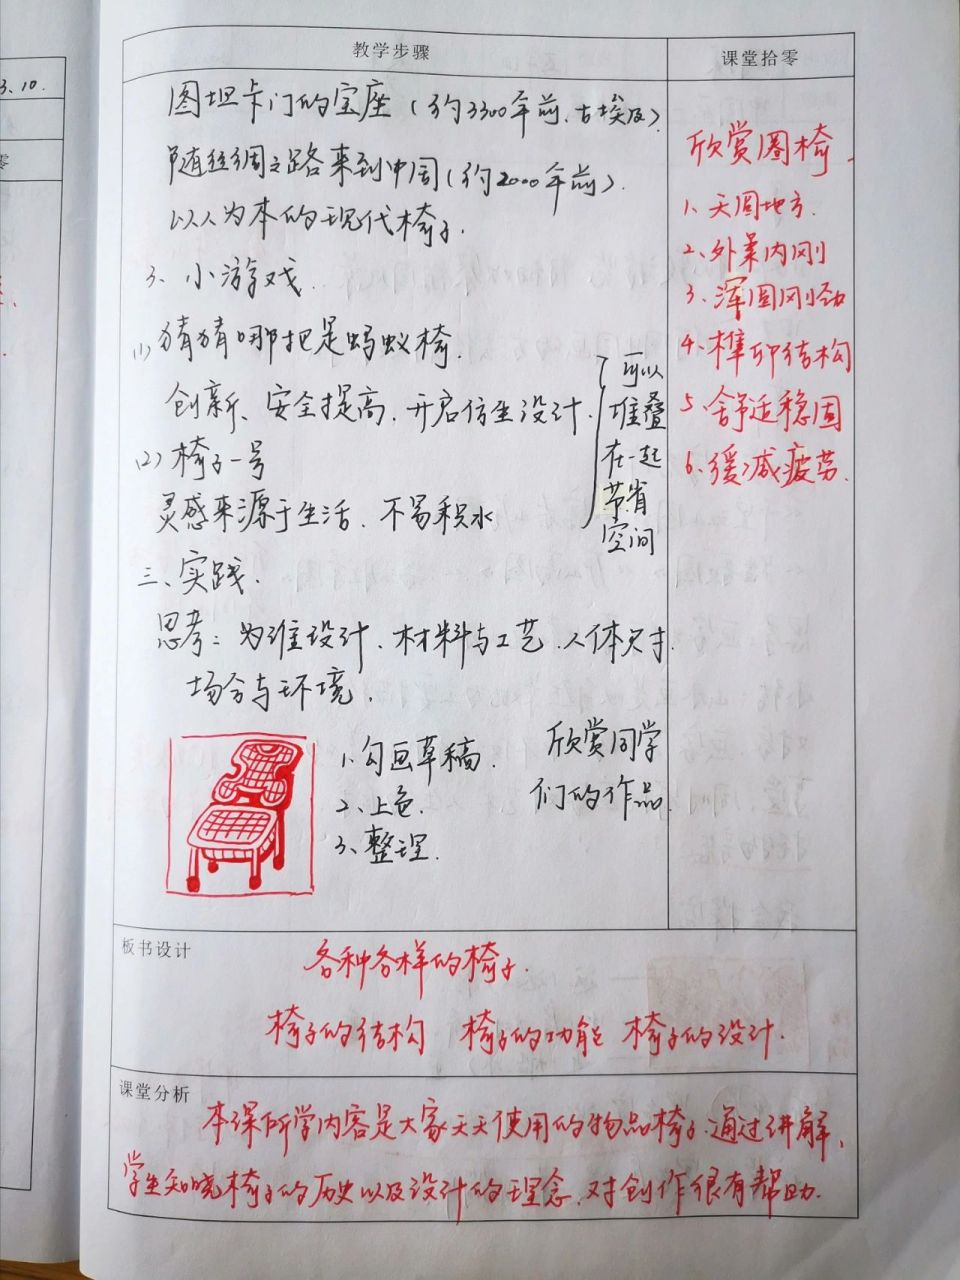 3.10.
零
教学步骤
课堂拾零
图坦卡门的宝座（约3300年前、古埃及）.
随丝绸之路来到中国（约2000年前）.
以人为本的现代椅子.
3、小游戏.
(1) 猜猜哪把是蚂蚁椅.
创新、安全提高、开启仿生设计.
(2) 椅子一号
灵感来源于生活、不易积水
可以
堆叠
在一起
节省
空间
三、实践.
思考：为谁设计、材料与工艺、人体尺寸、
场合与环境.
1、勾画草稿.
2、上色.
3、整理.
欣赏同学
们的作品
欣赏圈椅.
1、天圆地方.
2、外柔内刚
3、浑圆刚劲
4、榫卯结构
5、舒适稳固
6、缓减疲劳.
板书设计
各种各样的椅子.
椅子的结构 椅子的功能 椅子的设计.
课堂分析
本课所学内容是大家天天使用的物品椅子.通过讲解、
学生知晓椅子的历史以及设计的理念、对创作很有帮助.